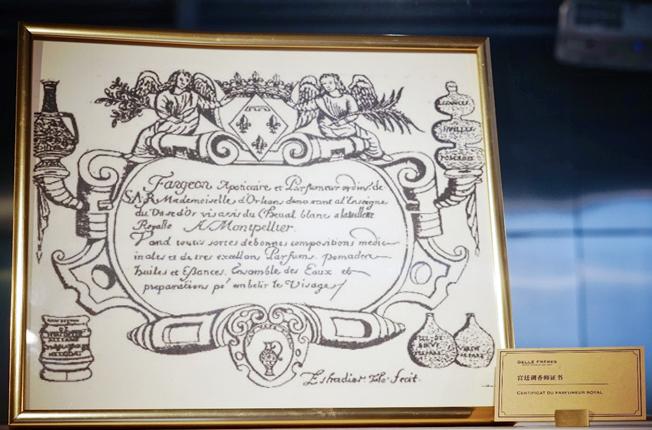 ESSANCES
HUILLES
POMADES
Fargeon Apoticaire et Parfumeur ordin.s de
S.A.R Mademoiselle d'Orlean demorant al'Enseigne
du Vase d'Or vis avis du Cheual blanc
Royalle A Montpellier.
Vand toutes sortes de bonnes compositions medic
inales et de tres excellens Parfums, pomades
huiles et Essances, Ensemble des Eaux et
preparations po.r embelir le Visage
Estradier
DELLE FRÈRES
宫廷调香师证书
CERTIFICAT DU PARFUMEUR ROYAL